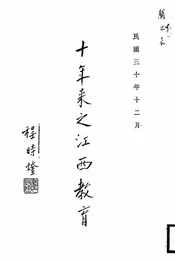 民國三十年十二月
十年来之江西教育
程時煃